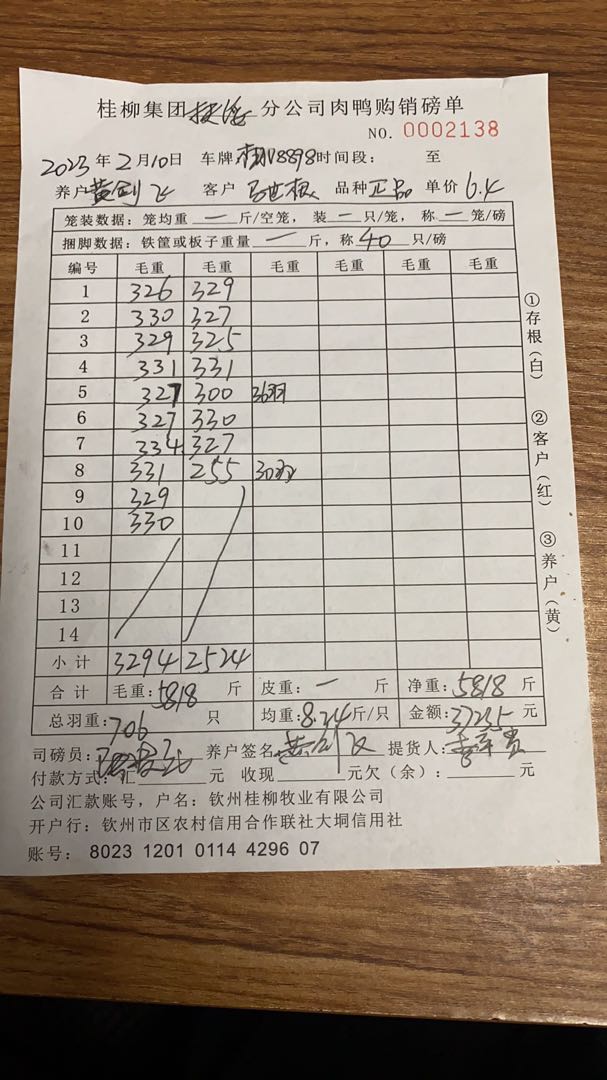 桂柳集团 分公司肉鸭购销磅单
NO. 0002138
2023年2月10日 车牌 8898 时间段： 至
养户 黄 飞 客户 品种 正品 单价 6.4
笼装数据：笼均重 — 斤/空笼，装 — 只/笼，称 — 笼/磅
捆脚数据：铁筐或板子重量 — 斤，称 40 只/磅
编号 毛重 毛重 毛重 毛重 毛重 毛重
1 326 329
2 330 327
3 329 325
4 331 331
5 327 300 36羽
6 327 330
7 334 327
8 331 255 30羽
9 329
10 330
11
12
13
14
小计 3294 2524
合计 毛重：5818 斤 皮重：— 斤 净重：5818 斤
总羽重：706 只 均重：8.24 斤/只 金额：37235 元
司磅员： 养户签名 黄 飞 提货人：
付款方式：汇 元 收现 元欠（余）： 元
公司汇款账号，户名：钦州桂柳牧业有限公司
开户行：钦州市区农村信用合作联社大垌信用社
账号： 8023 1201 0114 4296 07
①存根（白）
②客户（红）
③养户（黄）